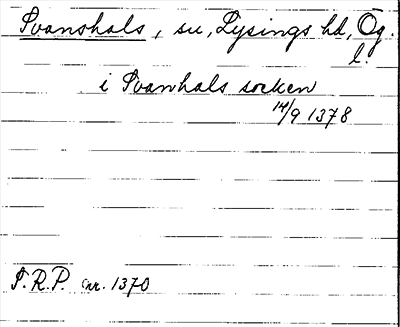 Svanshals, sn, Lysings hd, Ög.
l.
i Svanhals socken
14/9 1378
S.R.P. nr. 1370